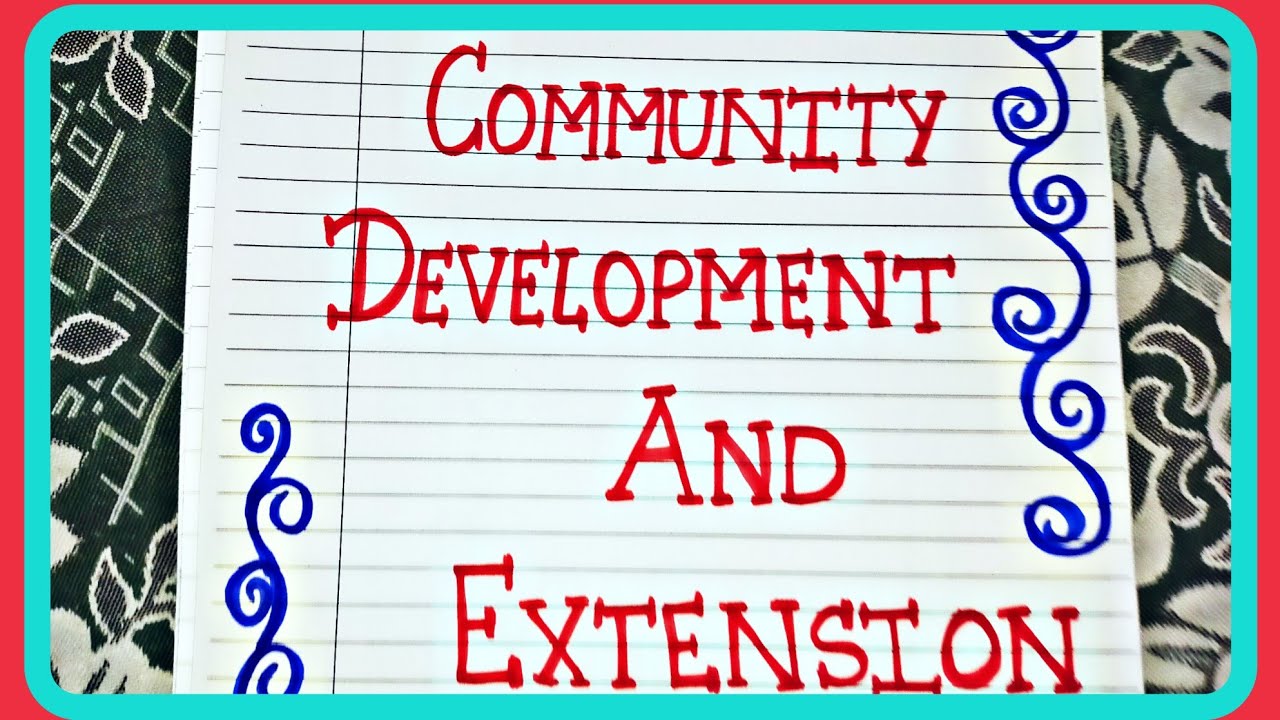 COMMUNITY
DEVELOPMENT
AND
EXTENSION